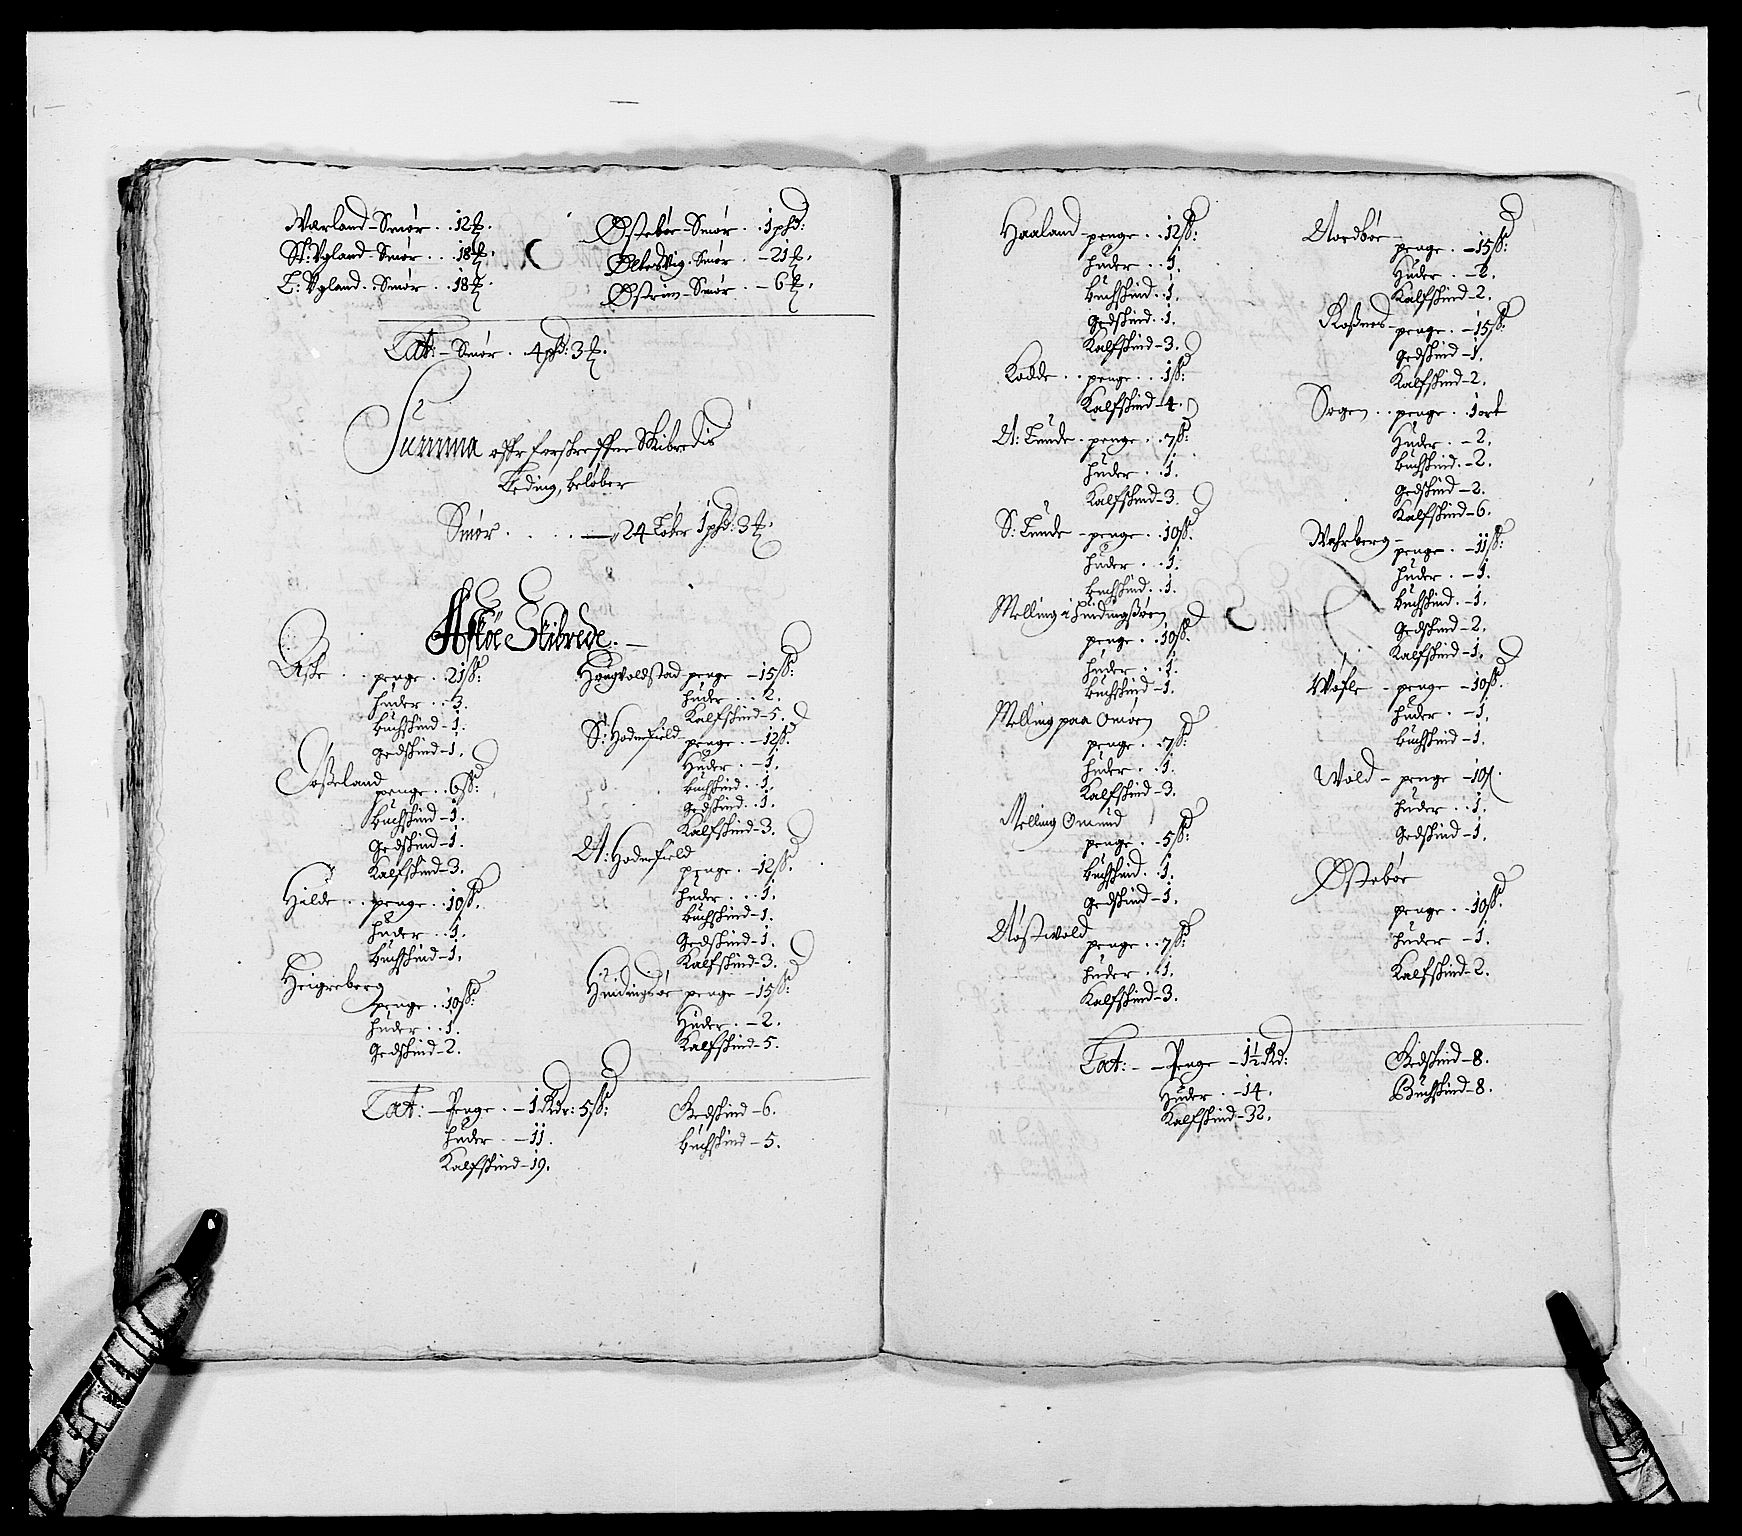 Wærland - Smør . . 12 ℔.
St: Vgland - Smør . . . 18 ℔.
L: Vgland . Smør . . 18 ℔.
Østebør - Smør . . 1 phd:
Øltesvig . Smør . - 21 ℔.
Østrim - Smør . - 6 ℔.
Lat: - Smør . 4 phd: 3 ℔.
Summa offr forskreffne Skibredis
Leding, beløber
Smør . . . . . — 24 Løber 1 phd: 3 ℔.
Askøe Skibrede. —
Aske . . penge . 21 ß:
huder . . 3.
buchskind - 1.
gedskind - 1.
Foßeland
penge . . 6 ß:
buchskind - 1.
gedskind - 1.
Kalfskind - 3.
Hilde . . penge . . 10 ß.
huder . . 1.
buchskind - 1.
Heigreberg
penge . . 10 ß:
huder . . 1.
gedskind - 2.
Hougvoldstad penge - 15 ß:
huder . . 2.
Kalfskind - 5.
S: Hodnefield - penge . - 12 ß.
Huder . - 1.
buchskind . . 1.
gedskind . . 1.
Kalfskind - 3.
N: Hodnefield
penge . - 12 ß.
huder . . . 1.
buchskind - 1.
gedskind - 1.
Kalfskind - 3.
Huidingsøe penge - 15 ß:
Huder . - 2.
Kalfskind - 5.
Lat: - Penge . - 1 Rdr: 5 ß:
huder . - 11.
Kalfskind - 19.
Gedskind - 6.
buchskind - 5.
Haaland - penge . . 12 ß:
huder . . 1.
buchskind . . 1.
gedskind . . 1.
Kalfskind - 3.
Kodde . . penge . . 1 ß:
Kalfskind - 4.
N: Lunde - penge . . 7 ß:
huder . . 1.
Kalfskind - 3.
S: Lunde - penge . . 10 ß.
huder . . 1.
buchskind . . 1.
Melling i Huidingsøen
penge . . 10 ß.
huder . . 1.
buchskind - 1.
Melling paa Omøen
penge . . 7 ß:
huder . . 1.
Kalfskind - 3.
Melling Omund
penge . - 5 ß:
buchskind . . 1.
gedskind - 1.
Nøstwold
penge . . 7 ß:
huder . . 1.
Kalfskind - 3.
Nordbøe -
penge . - 15 ß:
Huder . - 2.
Kalfskind - 2.
Roßnes - penge . - 15 ß:
gedskind - 1.
Kalfskind - 2.
Sogen . . penge . . 1 ort
Huder . - 2.
buchskind . - 2.
gedskind - 2.
Kalfskind - 6.
Wahrberg -
penge . - 11 ß:
huder . - 1.
buchskind . - 1.
Gedskind - 2.
Kalfskind - 1.
Wøfle - penge - 10 ß.
huder . - 1.
buchskind - 1.
Wold - penge - 10 ß.
huder . . 1.
gedskind - 1.
Østebøe
penge . . 10 ß.
huder - 1.
Kalfskind - 2.
Lat: - - Penge - 1½ Rd:
Huder . - 14.
Kalfskind - 32.
Gedskind - 8.
Buchskind - 8.